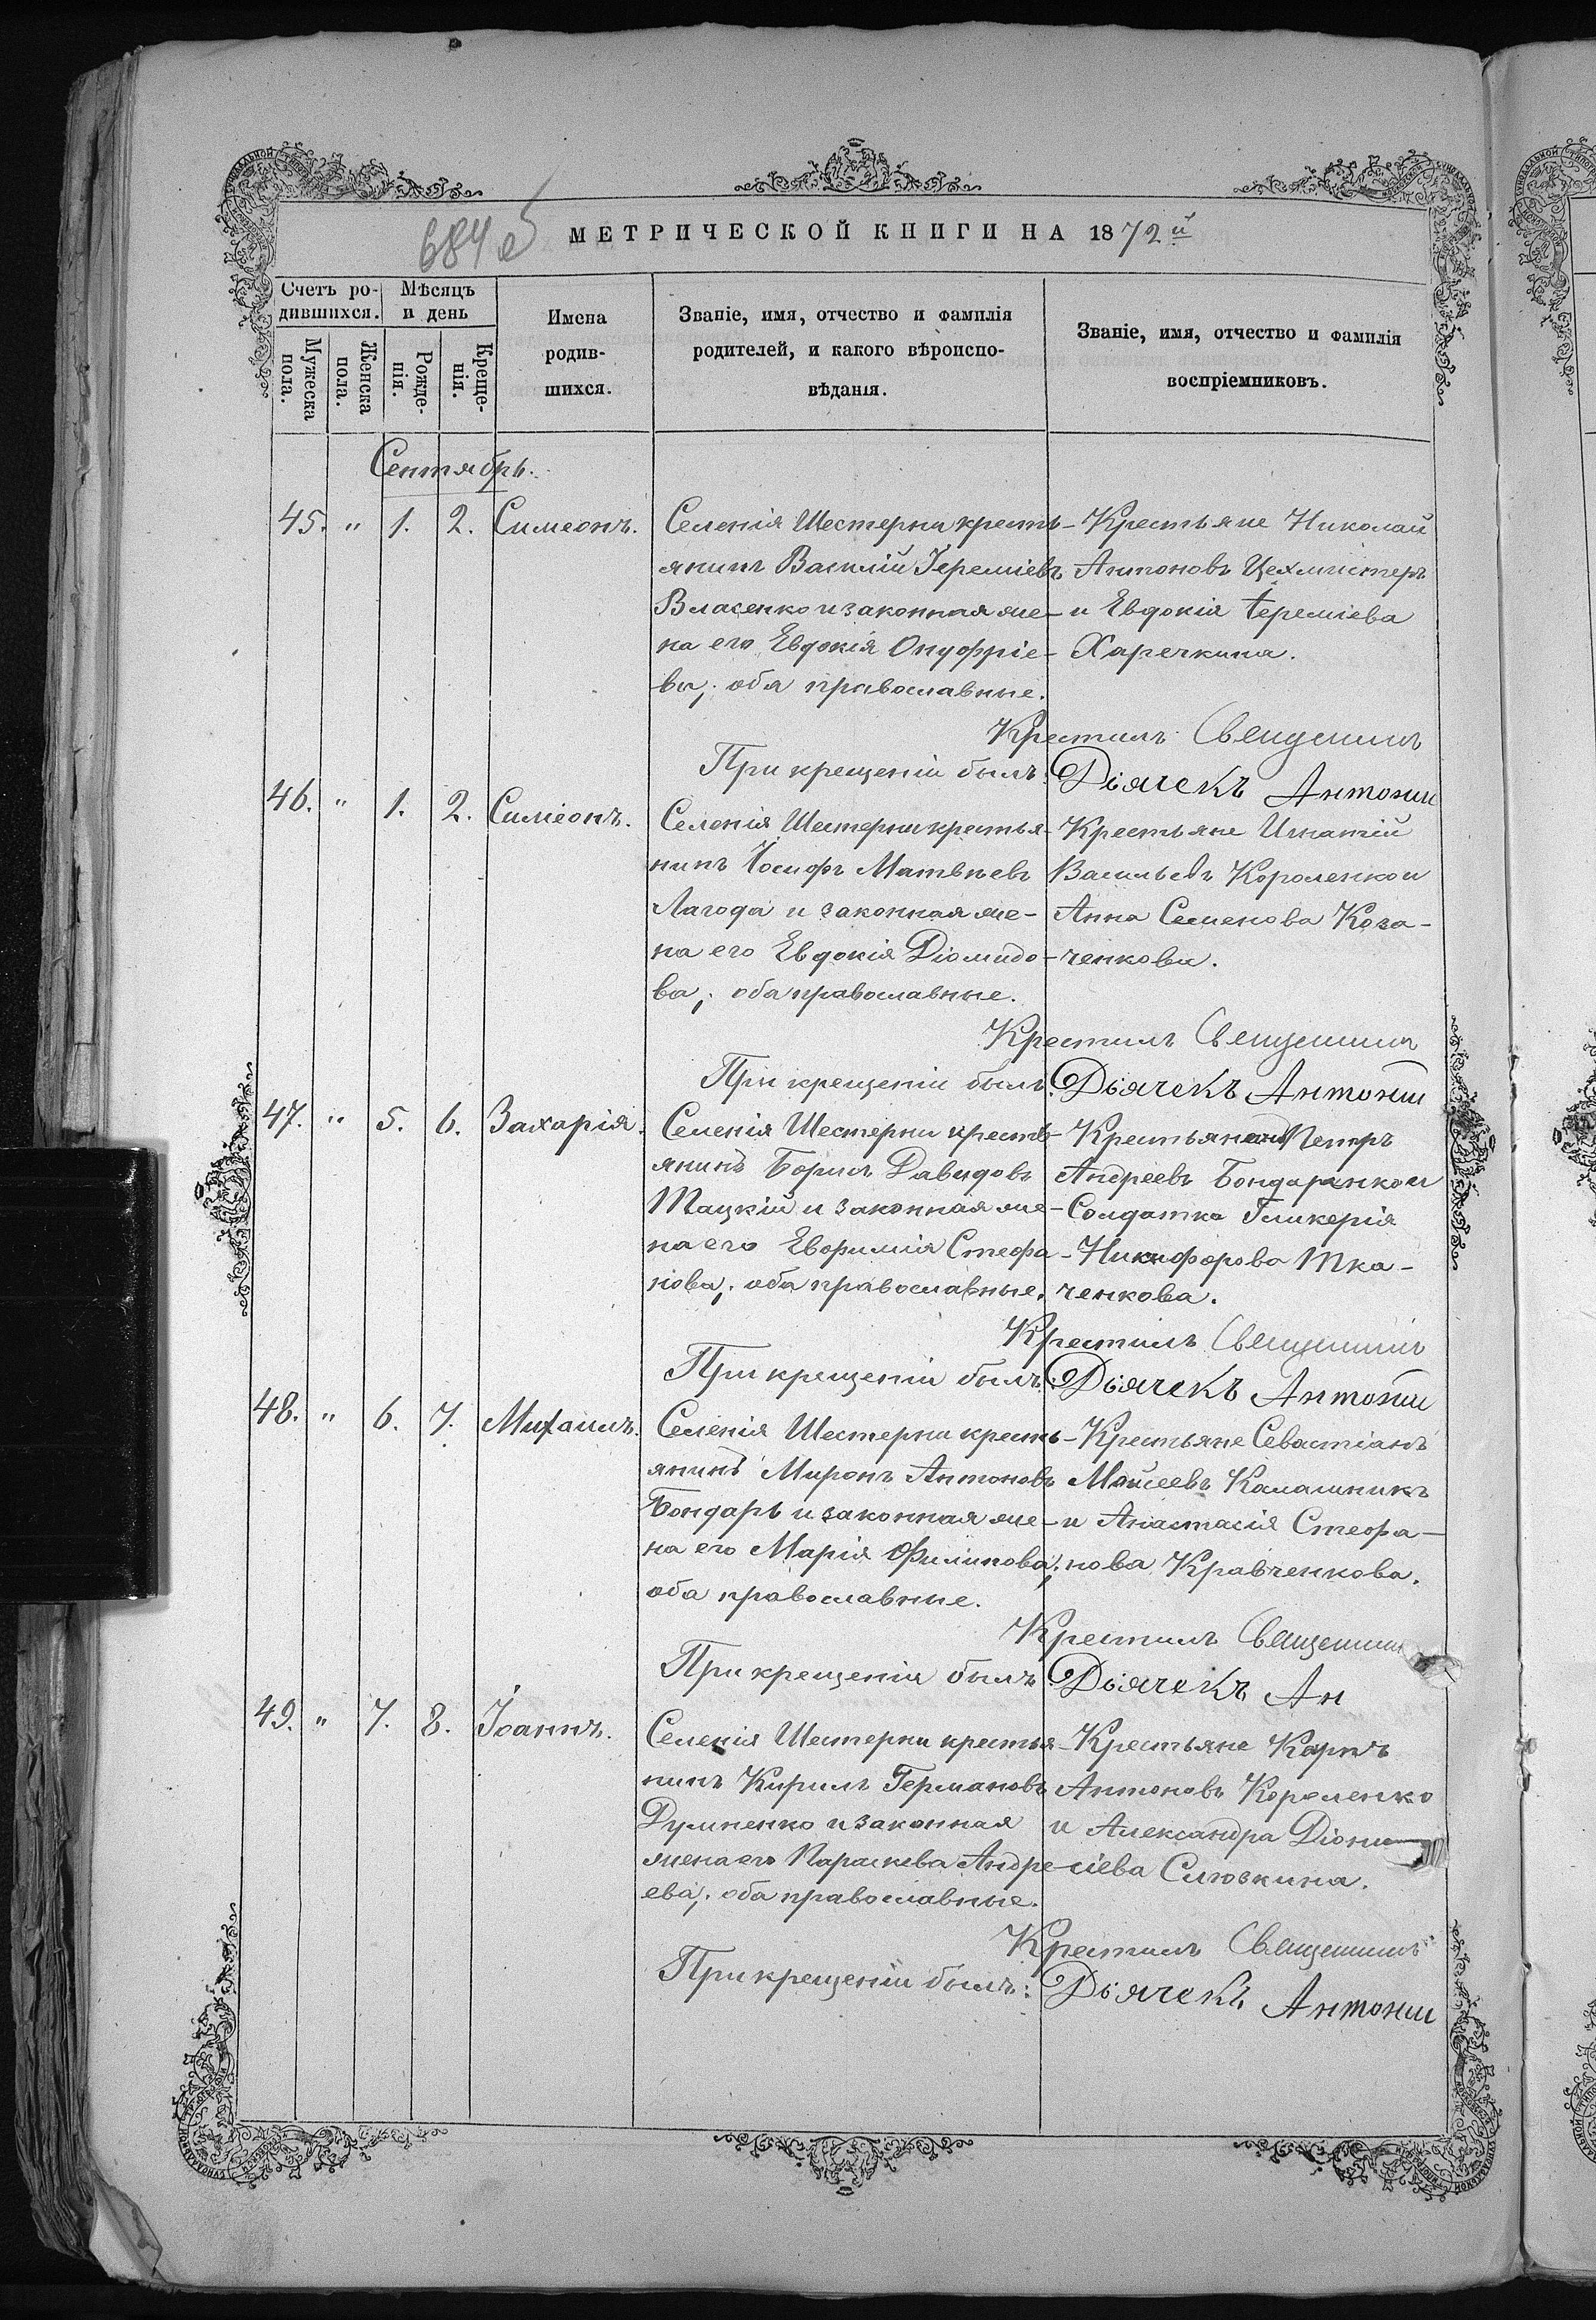 684 об
МЕТРИЧЕСКОЙ КНИГИ НА 1872й
Счетъ ро-
дившихся.
Мѣсяцъ
и день
Мужеска
пола.
Женска
пола.
Рожде-
нія.
Креще-
нія.
Имена
родив-
шихся.
Званіе, имя, отчество и фамилія
родителей, и какого вѣроиспо-
вѣданія.
Званіе, имя, отчество и фамилія
воспріемниковъ.
Сентябрь.
45. " 1. 2. Симеонъ.
Селенія Шестерни кресть-
янинъ Василій Іереміевъ
Власенко и законная же-
на его Евдокія Онуфріе-
ва; оба православные.
Крестьяне Николай
Антоновъ Цехмистеръ
и Евдокія Іереміева
Харечкина.
Крестилъ Священникъ
При крещеніи былъ: Дьячекъ Антоній
46. " 1. 2. Симеонъ.
Селенія Шестерни крестья-
нинъ Іосифъ Матвѣевъ
Лагода и законная же-
на его Евдокія Діомидо-
ва; оба православные.
Крестьяне Игнатій
Васильевъ Короленко и
Анна Семенова Коза-
ченкова.
Крестилъ Священникъ
При крещеніи былъ: Дьячекъ Антоній
47. " 5. 6. Захарія.
Селенія Шестерни кресть-
янинъ Борисъ Давидовъ
Тацкій и законная же-
на его Евфимія Стефа-
нова; оба православные.
Крестьянинъ Петръ
Андреевъ Бондаренко и
Солдатка Гликерія
Никифорова Тка-
ченкова.
Крестилъ Священникъ
При крещеніи былъ: Дьячекъ Антоній
48. " 6. 7. Михаилъ.
Селенія Шестерни кресть-
янинъ Миронъ Антоновъ
Бондарь и законная же-
на его Марія Филипова;
оба православные.
Крестьяне Севастіанъ
Моисеевъ Калашникъ
и Анастасія Стефа-
нова Кравченкова.
Крестилъ Священник
При крещеніи былъ: Дьячекъ Ан
49. " 7. 8. Іоаннъ.
Селенія Шестерни крестья-
нинъ Кирилъ Германовъ
Думненко и законная
жена его Параскева Андре-
ева; оба православные.
Крестьяне Карпъ
Антоновъ Короленко
и Александра Діони-
сіева Слюзкина.
Крестилъ Священникъ
При крещеніи былъ: Дьячекъ Антоній